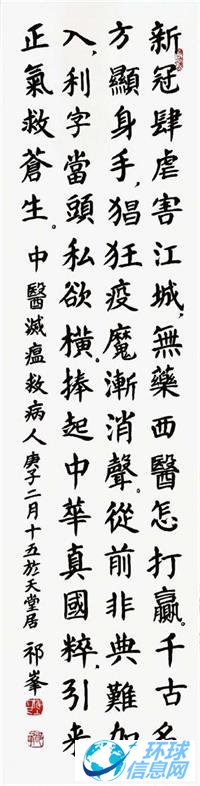 新冠肆虐害江城,無藥西醫怎打贏。千古名
方顯身手,猖狂疫魔漸消聲。從前非典難加
入,利字當頭私欲橫,捧起中華真國粹,引来
正氣救蒼生。中醫滅瘟救病人 庚子二月十五於天堂居 祁峯
环球
信息网